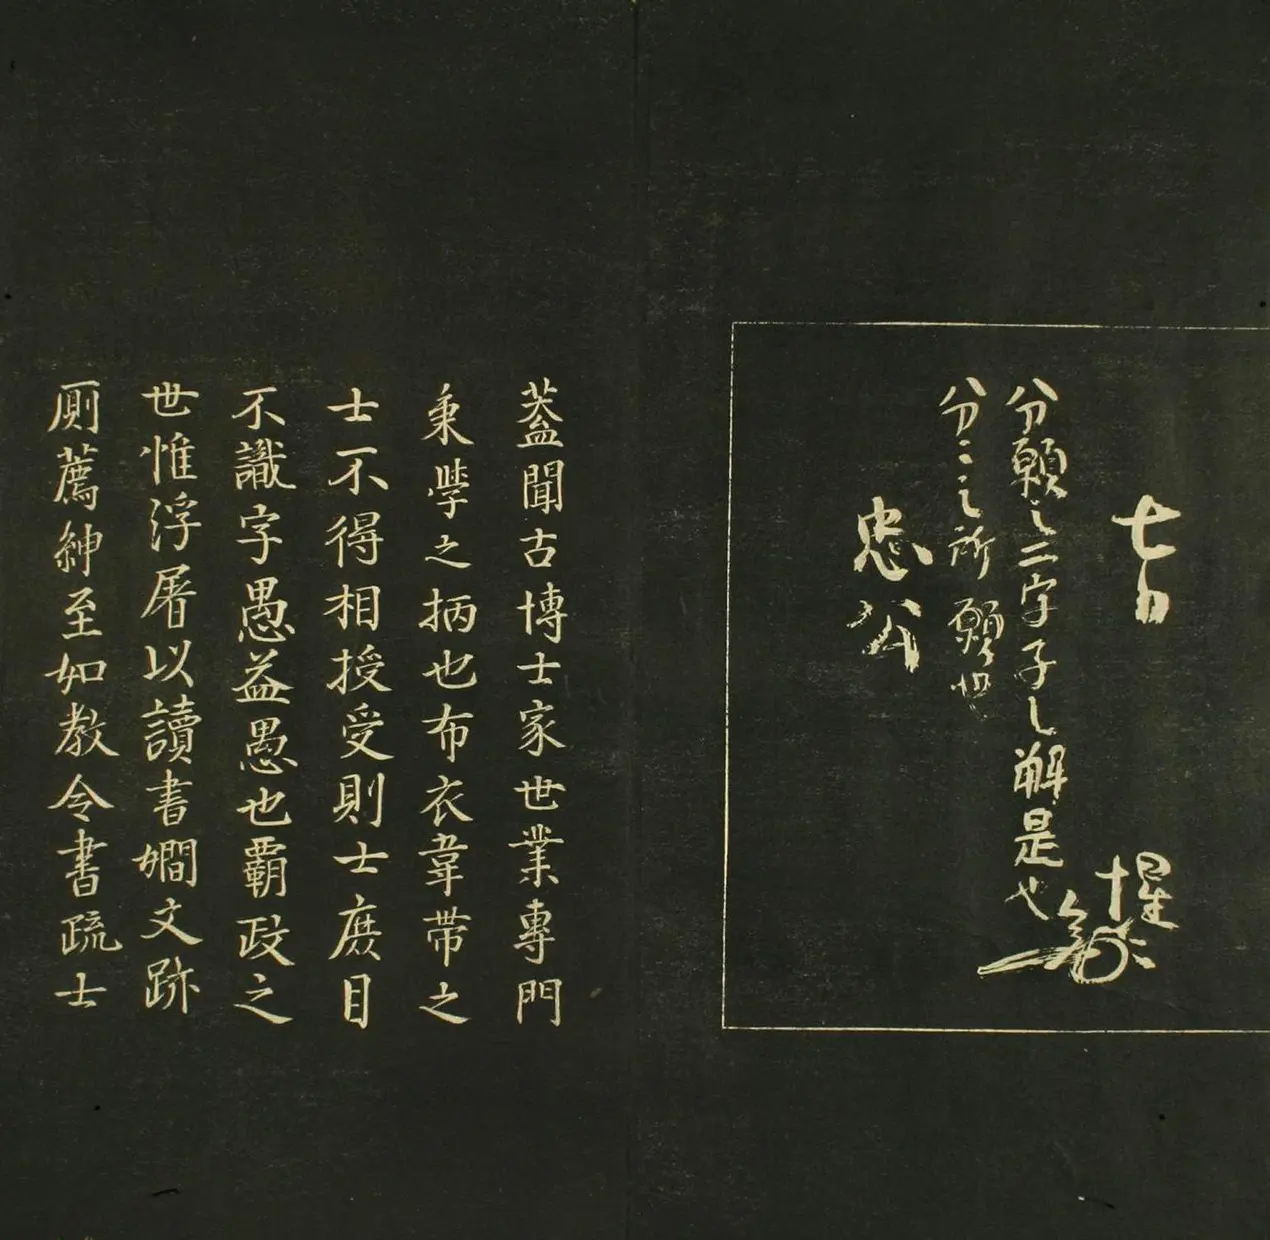 七日
惺
分願之二字子之解是也
分之之所願也
忠公
葢聞古博士家世業專門
秉學之柄也布衣韋帶之
士不得相授受則士庶目
不識字愚益愚也覇政之
世惟浮屠以讀書嫺文跡
厠薦紳至如教令書疏士